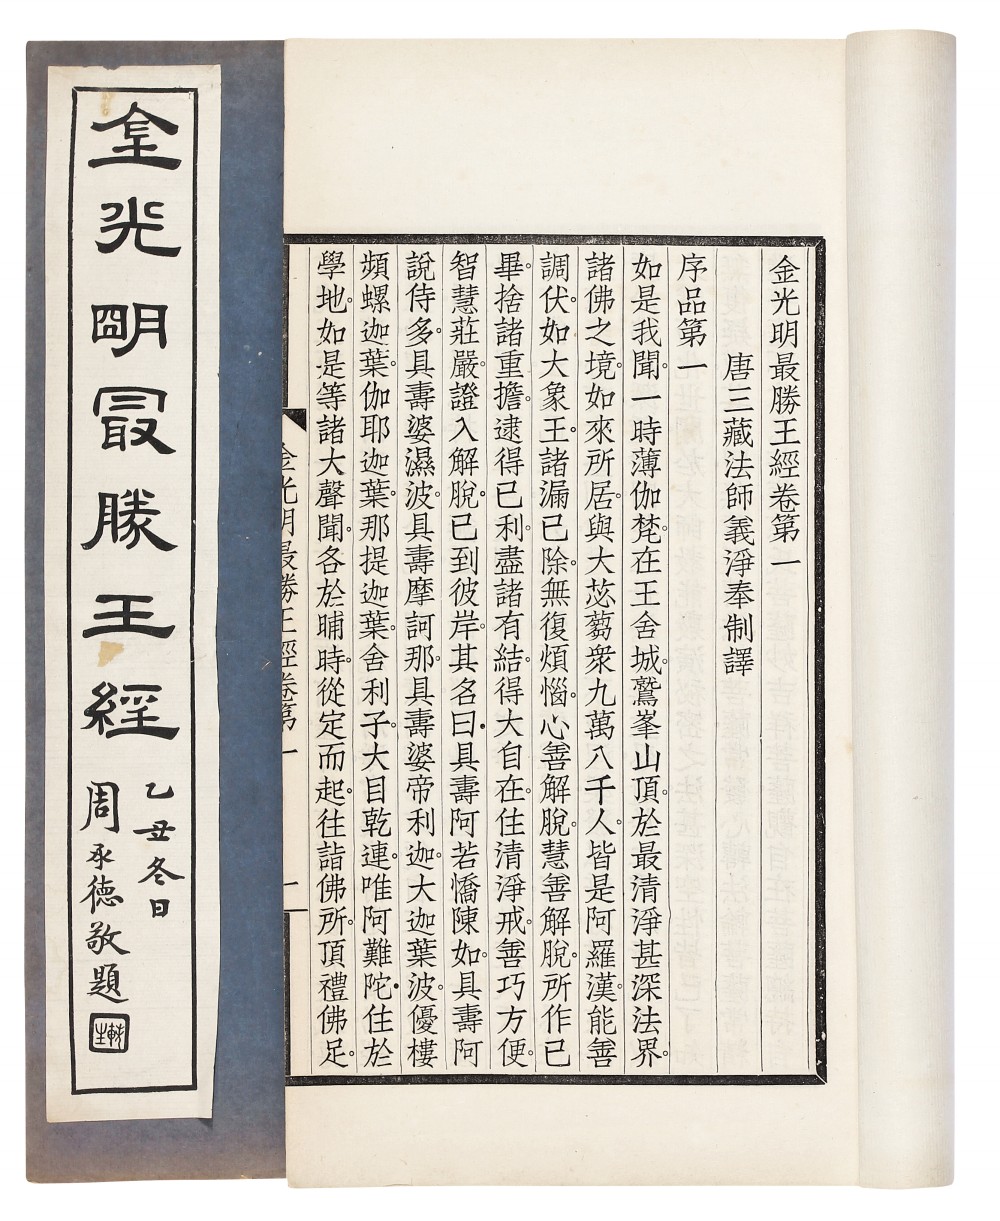 金光明最勝王經
乙丑冬日
周承德敬題
金光明最勝王經卷第一
唐三藏法師義淨奉制譯
序品第一
如是我聞。一時薄伽梵。在王舍城。鷲峯山頂。於最清淨甚深法界。
諸佛之境。如來所居。與大苾蒭衆九萬八千人。皆是阿羅漢。能善
調伏。如大象王。諸漏已除。無復煩惱。心善解脫。慧善解脫。所作已
畢。捨諸重擔。逮得已利。盡諸有結。得大自在。住清淨戒。善巧方便。
智慧莊嚴。證入解脫。已到彼岸。其名曰。具壽阿若憍陳如。具壽阿
說侍多。具壽婆濕波。具壽摩訶那。具壽婆帝利迦。大迦葉波。優樓
頻螺迦葉。伽耶迦葉。那提迦葉。舍利子。大目乾連。唯阿難陀。住於
學地。如是等諸大聲聞。各於晡時。從定而起。往詣佛所。頂禮佛足。
金光明最勝王經卷第一
一